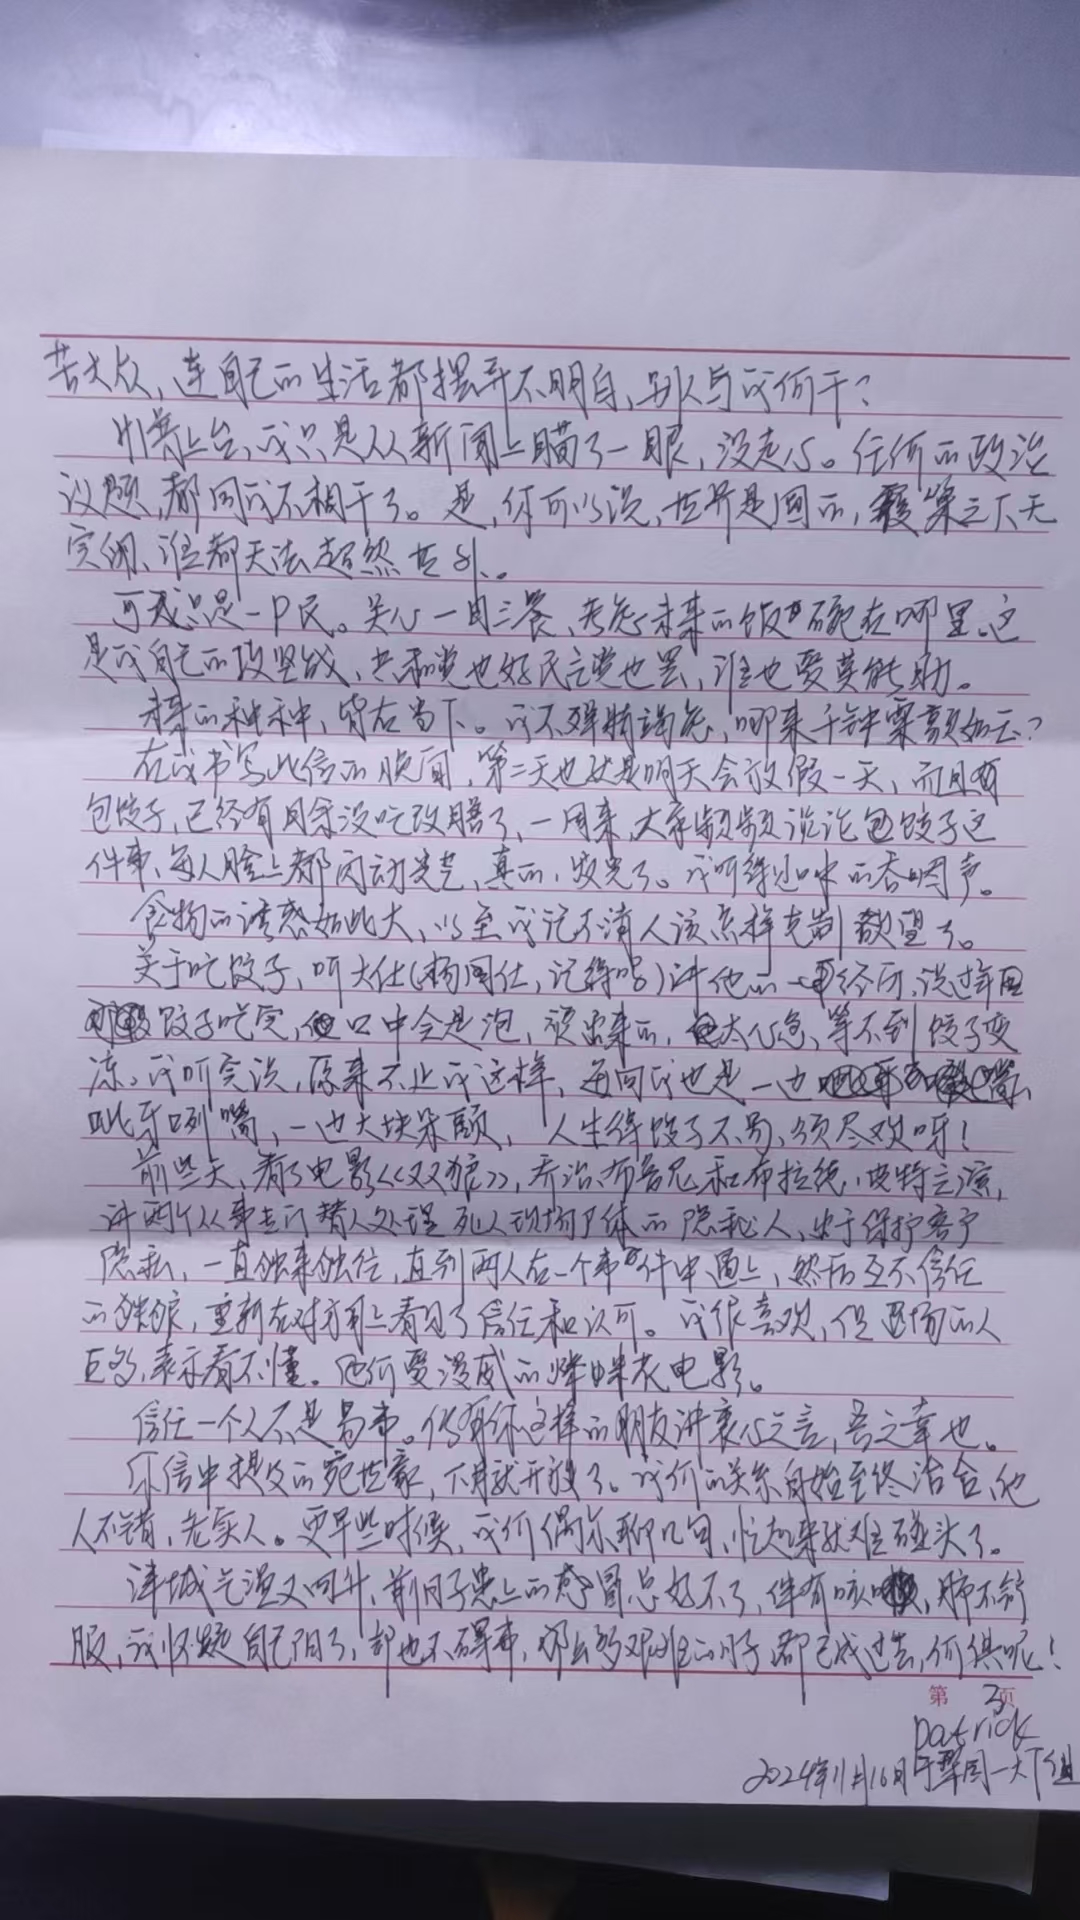 苦大众，连自己的生活都摆弄不明白，别人与我何干？
川普上台，我只是从新闻上瞄了一眼，没走心。任何的政治
议题，都同我不相干了。是，你可以说，世界是圆的，覆巢之下无
完卵，谁都无法超然世外。
可我只是一P民。关心一日三餐，考虑未来的饭碗在哪里，这
是我自己的攻坚战，共和党也好民主党也罢，谁也爱莫能助。
未来的种种，皆在当下。我不殚精竭虑，哪来千钟粟
在我书写此信的晚间，第二天也就是明天会放假一天，而且有
包饺子，已经有月余没吃改膳了，一周来，大家频频谈论包饺子这
件事，每人脸上都闪动光芒，真的，发光了。我听得见口中的吞咽声。
食物的诱惑如此大，以至我记不清人该怎样克制欲望了。
关于吃饺子，听大仕（杨国仕，记得吗）讲他的经历，说过年回
饺子吃完，口中会是泡，烫出来的，太心急，等不到饺子变
凉。我听完说，原来不止我这样，每回我也是一边
呲牙咧嘴，一边大块朵颐，人生得饺子不易，须尽欢呀！
前些天，看了电影《双狼》，乔治·布鲁尼和布拉德·皮特主演，
讲两个从事专门替人处理死人现场尸体的隐秘人，出于保护客户
隐私，一直独来独往，直到两人在一个事件中遇上，然后互不信任
的独狼，重新在对方身上看见了信任和认可。我很喜欢，但退场的人
巨多，表示看不懂。他们要漫威的爆米花电影。
信任一个人不是易事。仍有你这样的朋友讲衷心之言，吾之幸也。
尔信中提及的宛世豪，下月就开放了。我们的关系自始至终洽合，他
人不错，老实人。更早些时候，我们偶尔聊几句，忙起来就难碰头了。
津城气温又回升，前日子患上的感冒总好不了，伴有咳，肺不舒
服，我怀疑自己阳了，却也不碍事，那么多艰难的日子都已成过去，何惧呢！
第 3 页
patrick
2024年11月16日于犁园一大下组